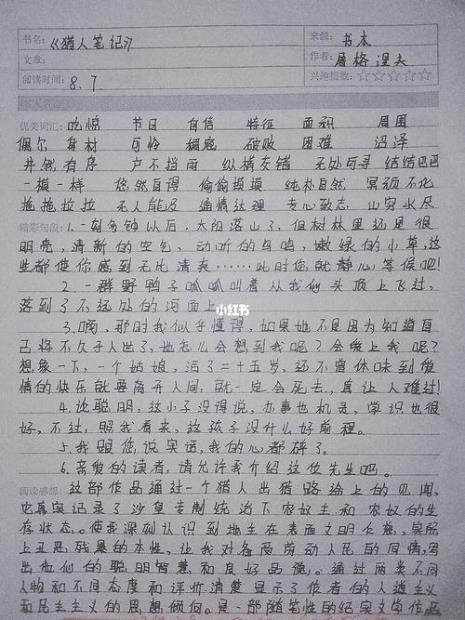 书名: 《猎人笔记》 来源: 书本
文章: 作者: 屠格涅夫
阅读时间: 8.7 兴趣指数: ☆☆☆☆☆
优美词汇: 吃惊 节日 自信 特征 面积 周围
偶尔 身材 可怜 破败 困难 沼泽
井然有序 户不挡雨 纵横交错 无处可寻 结结巴巴
一模一样 悠然自得 偷偷摸摸 纯朴自然 冥顽不化
拖拖拉拉 无人能及 通情达理 专心致志 山穷水尽
精彩句段: 1.一刻分钟以后,太阳落山了,但树林里还是很
明亮,清新的空气,动听的鸟鸣,嫩绿的小草,这
些都使你感到无比清爽……此时您就静心等候吧!
2.一群野鸭子呱呱叫着从我们头顶上飞过,
落到了不远处的河面上。
3.啊,那时我似乎懂得,如果她不是因为知道自
己将不久于人世了,她怎么会想到我呢?会爱上我呢?
想象一下,一个姑娘,活了二十五岁,还不曾体味到爱
情的快乐就要离开人间,就一定会死去,真让人难过!
4.沈聪明,这小子没得说,办事也机灵,学识也很
好,不过,照我看来,这孩子没什么好前程。
5.我跟您说实话,我的心都碎了。
6.亲爱的读者,请允许我介绍这位先生吧。
阅读感想: 这部作品通过一个猎人出猎路途上的见闻,
它真实记录了沙皇专制统治下农奴主和农奴的生
存状态。使我深刻认识到地主在表面文明仁慈,实际
上丑恶残暴的本性,让我对备受劳动人民的同情,写
出他们的聪明智慧和良好品德。通过两类不同
人物和不同态度和评价清楚显示了作者的人道主义
和民主主义的思想倾向。是一部随笔性的纪实文学作品
小红书